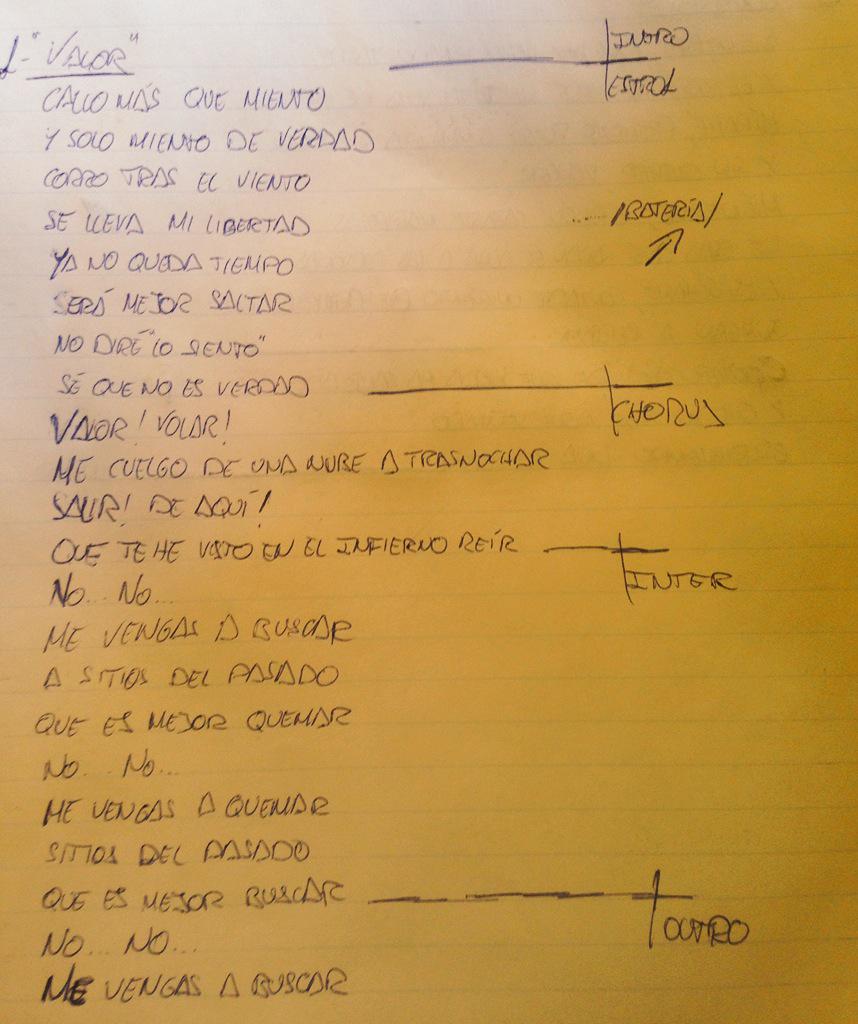 1-"VALOR"
INTRO
ESTROF
CALLO MÁS QUE MIENTO
Y SOLO MIENTO DE VERDAD
CORRO TRAS EL VIENTO
SE LLEVA MI LIBERTAD
...... /BATERÍA/
YA NO QUEDA TIEMPO
SERÁ MEJOR SALTAR
NO DIRÉ "LO SIENTO"
SÉ QUE NO ES VERDAD
CHORUS
VALOR! VOLAR!
ME CUELGO DE UNA NUBE A TRASNOCHAR
SALIR! DE AQUÍ!
QUE TE HE VISTO EN EL INFIERNO REÍR
INTER
NO... NO...
ME VENGAS A BUSCAR
A SITIOS DEL PASADO
QUE ES MEJOR QUEMAR
NO... NO...
ME VENGAS A QUEMAR
SITIOS DEL PASADO
QUE ES MEJOR BUSCAR
OUTRO
NO... NO...
ME VENGAS A BUSCAR